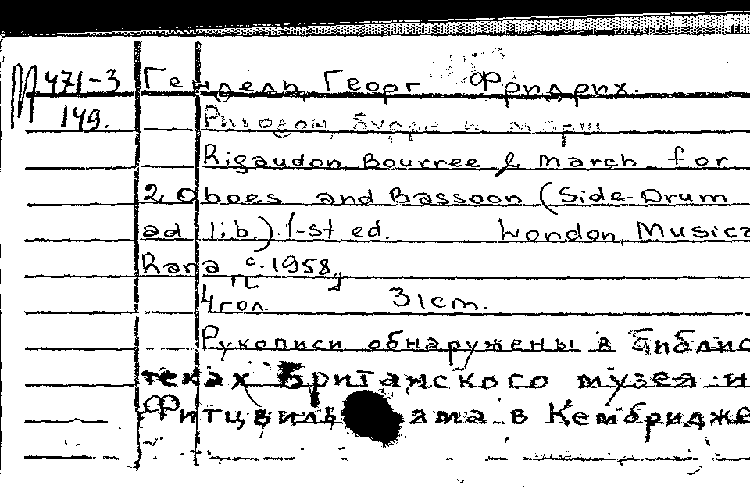 М 471-3 Гендель, Георг Фридрих.
149. Ригодон, бурре и марш
Rigaudon Bourree & march for
2 Oboes and Bassoon (Side-Drum
ad lib.) 1-st ed. London, Musica
Rara, c. 1958,
4 гол. 31cm.
Рукописи обнаружены в библио
теках Британского музея и
Фитцвиль яма в Кембридже